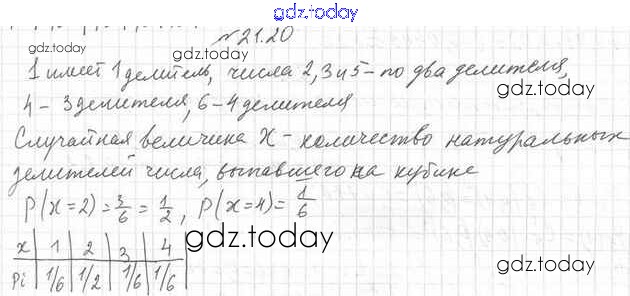 gdz.today
№21.20
gdz.today
gdz.today
1 имеет 1 делитель, числа 2, 3 и 5 - по два делителя,
gdz.today
4 - 3 делителя, 6 - 4 делителя
Случайная величина X - количество натуральных
делителей числа, выпавшего на кубике
P(x=2) = 3/6 = 1/2, P(x=4) = 1/6
gdz.today
x | 1 | 2 | 3 | 4
pi | 1/6 | 1/2 | 1/6 | 1/6
gdz.today